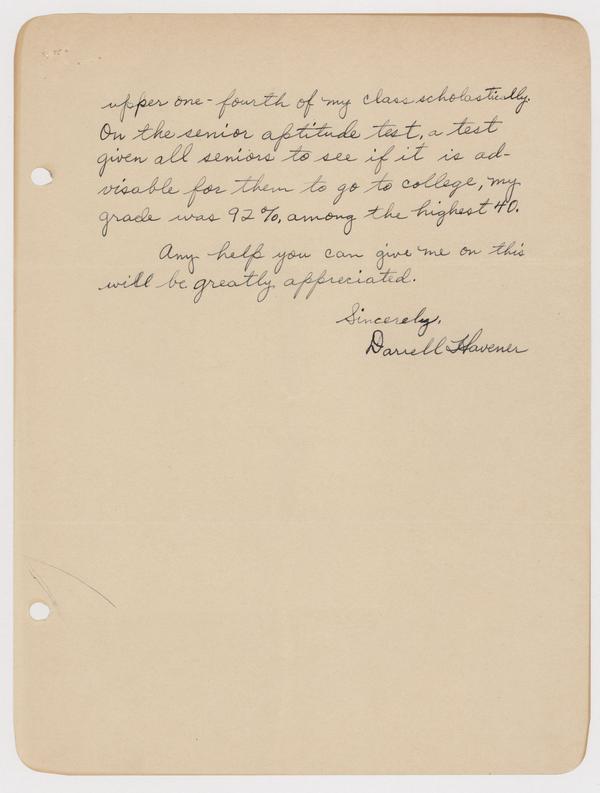 upper one-fourth of my class scholastically.
On the senior aptitude test, a test
given all seniors to see if it is ad-
visable for them to go to college, my
grade was 92%, among the highest 40.
Any help you can give me on this
will be greatly appreciated.
Sincerely,
Darrell Havener